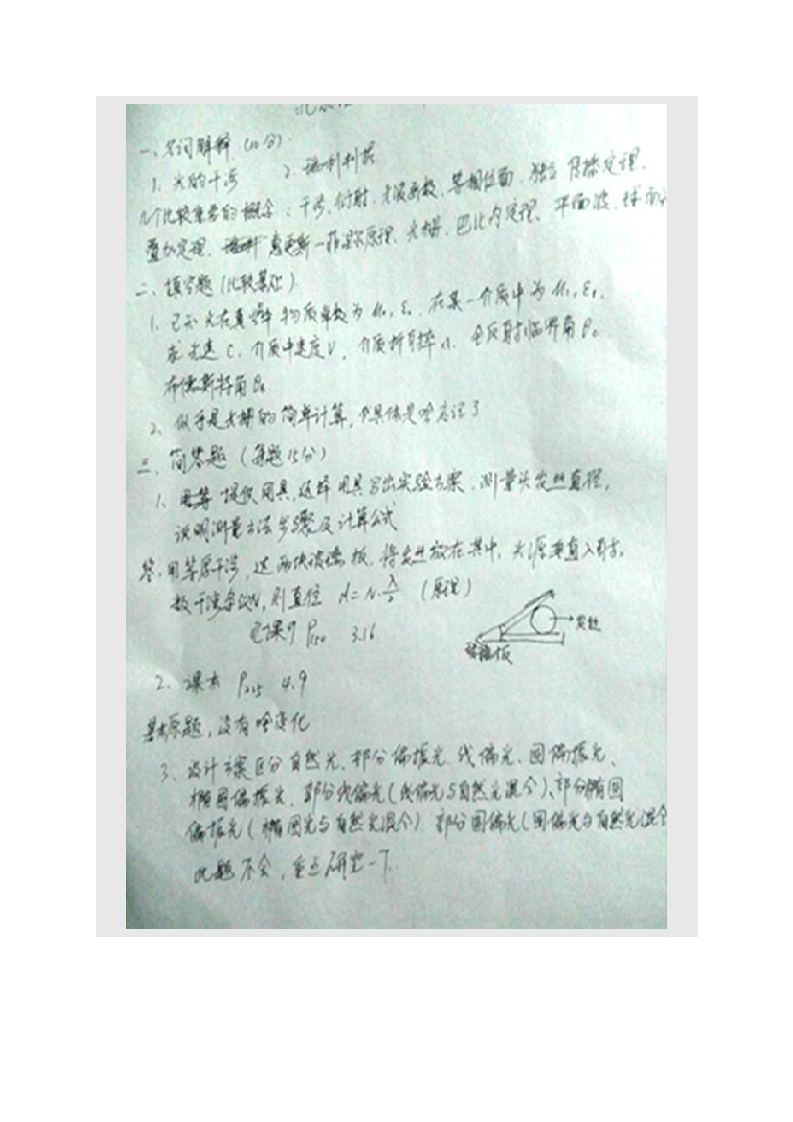 一、名词解释（10分）
1、光的干涉 2、瑞利判据
几个比较重要的概念：干涉、衍射、光波函数、等相位面、独立传播定理、
叠加定理、惠更斯-菲涅尔原理、光栅、巴比内定理、平面波、球面
二、填空题（比较基础）
1、已知光在真空中物质常数为 μ₀, ε₀，在某一介质中为 μ₁, ε₁，
求光速 C，介质中速度 V，介质折射率 n，全反射临界角 θc
布儒斯特角 θB
2、似乎是光栅的简单计算，但具体是啥忘记了
三、简答题（每题15分）
1、提供用具，选择用具写出实验方案，测量头发丝直径，
说明测量方法步骤及计算公式
答：用等厚干涉，选两块玻璃板，将发丝放在其中，光源垂直入射，
数干涉条纹N，则直径 d=N·λ/2 （原理）
P150 3.16
发丝
玻璃板
2、课本 P215 4.9
基本原题，没有啥变化
3、设计方案区分自然光、部分偏振光、线偏光、圆偏振光、
椭圆偏振光、部分线偏光（线偏光与自然光混合）、部分椭圆
偏振光（椭圆光与自然光混合） 部分圆偏光（圆偏光与自然光混合
此题不会，重点研究一下.